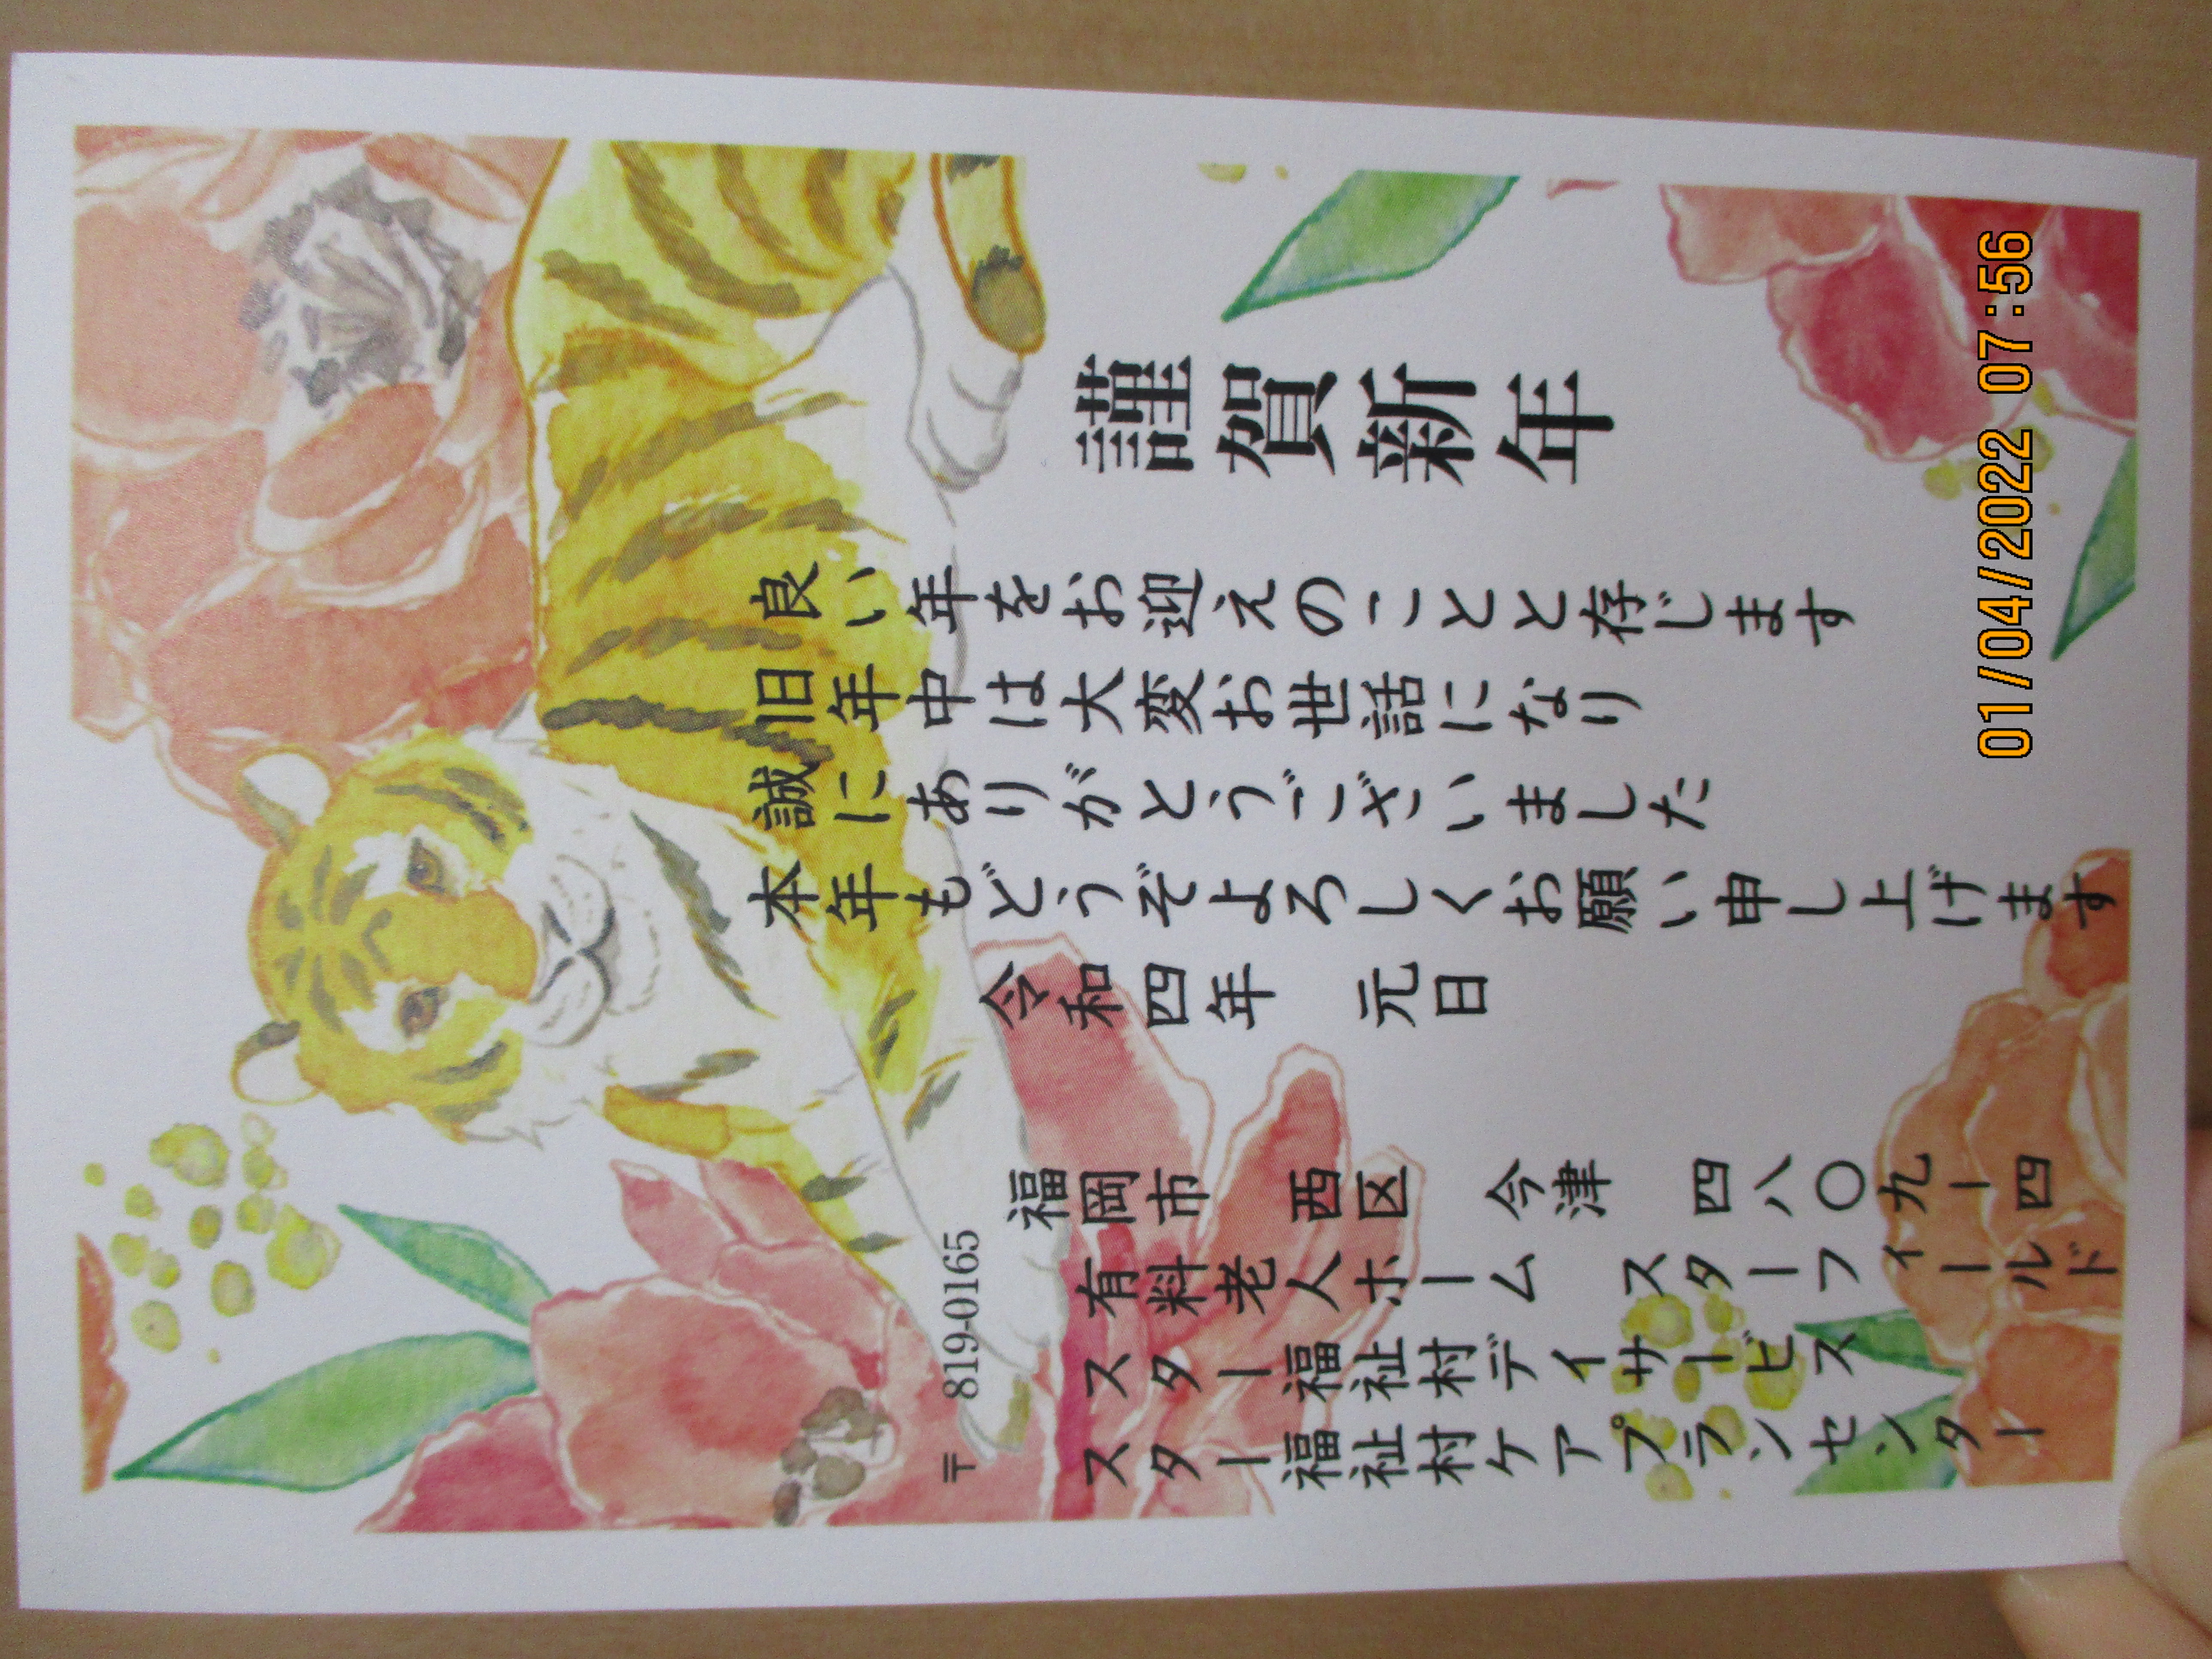 謹賀新年
良い年をお迎えのことと存じます
旧年中は大変お世話になり
誠にありがとうございました
本年もどうぞよろしくお願い申し上げます
令和四年 元日
〒 819-0165
福岡市 西区 今津 四八〇九ー四
有料老人ホーム スターフィールド
スター福祉村デイサービス
スター福祉村ケアプランセンター
01/04/2022 07:56